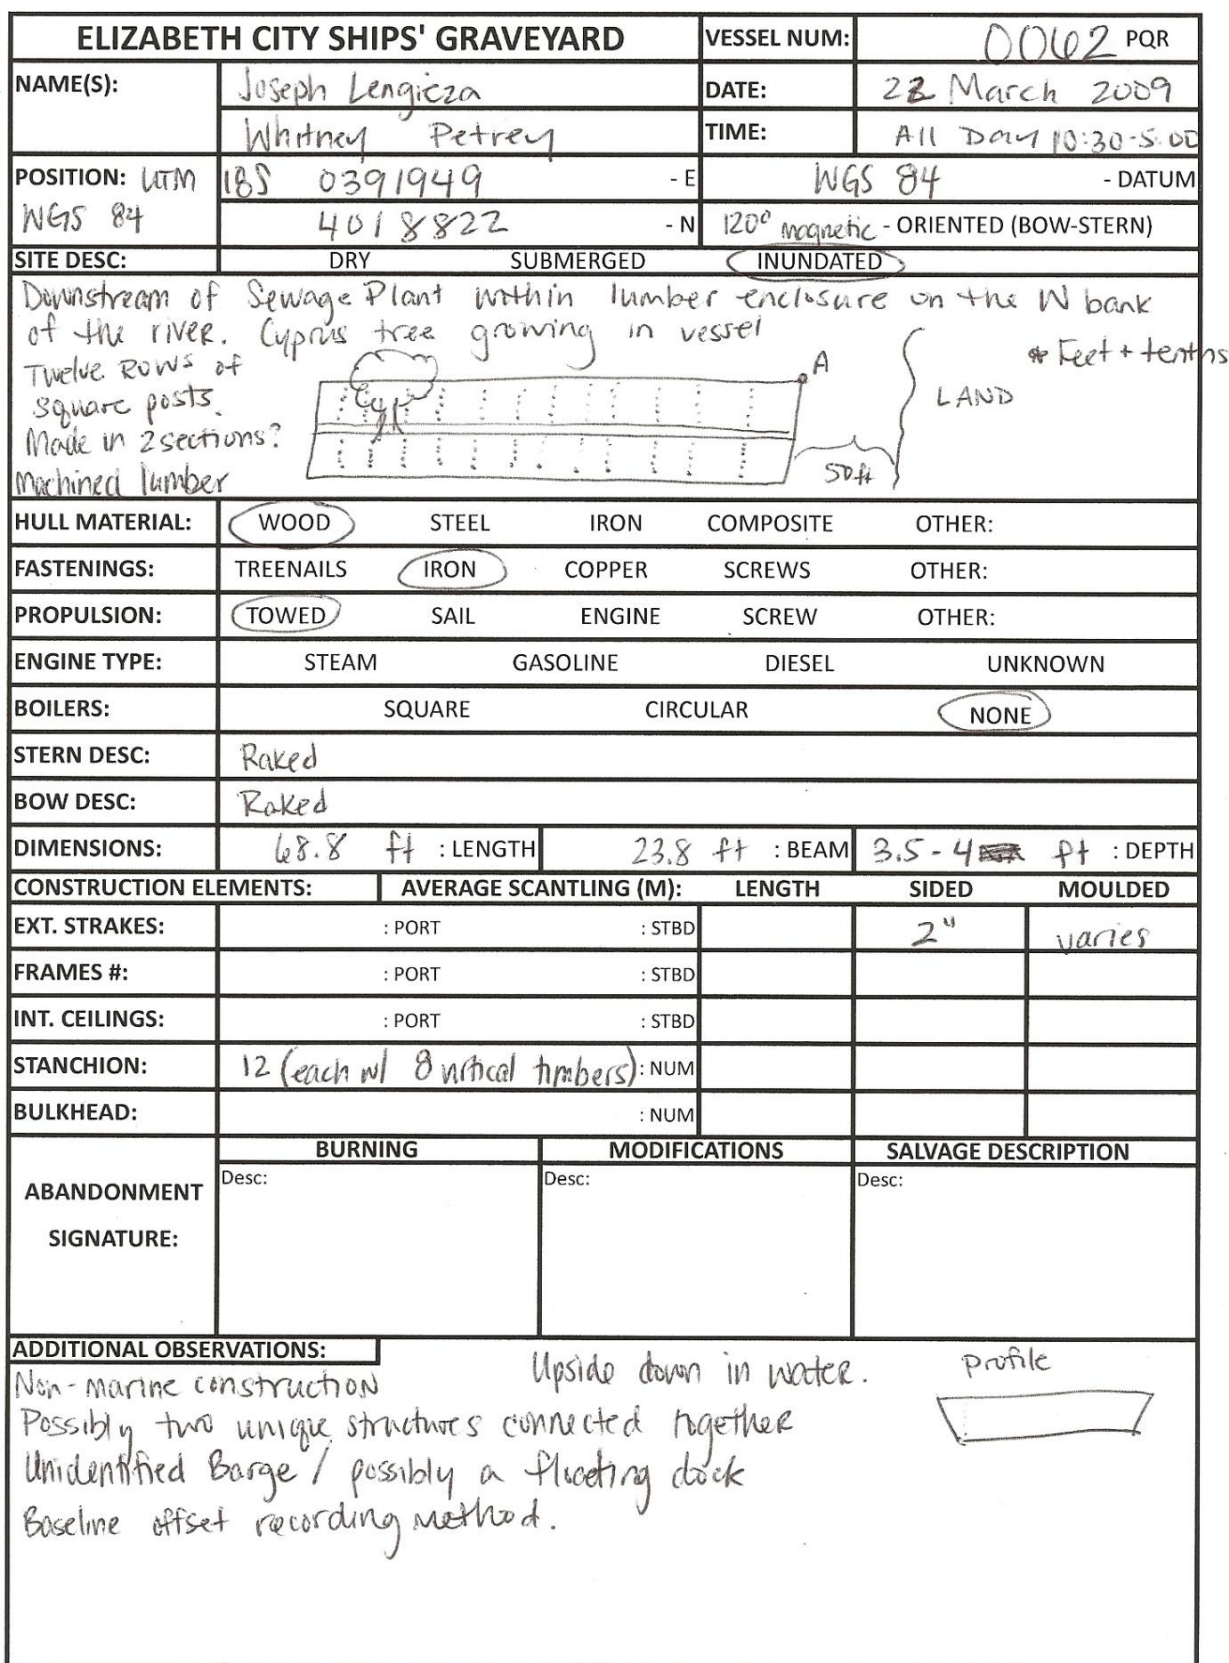 ELIZABETH CITY SHIPS' GRAVEYARD VESSEL NUM: 0062 PQR
NAME(S): Joseph Lengieza DATE: 22 March 2009
Whitney Petrey TIME: All Day 10:30-5:00
POSITION: UTM 18S 0391949 - E WGS 84 - DATUM
WGS 84 4018822 - N 120° magnetic - ORIENTED (BOW-STERN)
SITE DESC: DRY SUBMERGED INUNDATED
Downstream of Sewage Plant within lumber enclosure on the W bank
of the river. Cyprus tree growing in vessel
* Feet + tenths
Twelve Rows of
square posts.
Made in 2 sections?
Machined lumber
A
LAND
50 ft
HULL MATERIAL: WOOD STEEL IRON COMPOSITE OTHER:
FASTENINGS: TREENAILS IRON COPPER SCREWS OTHER:
PROPULSION: TOWED SAIL ENGINE SCREW OTHER:
ENGINE TYPE: STEAM GASOLINE DIESEL UNKNOWN
BOILERS: SQUARE CIRCULAR NONE
STERN DESC: Raked
BOW DESC: Raked
DIMENSIONS: 68.8 ft : LENGTH 23.8 ft : BEAM 3.5-4 ft : DEPTH
CONSTRUCTION ELEMENTS: AVERAGE SCANTLING (M): LENGTH SIDED MOULDED
EXT. STRAKES: : PORT : STBD 2" varies
FRAMES #: : PORT : STBD
INT. CEILINGS: : PORT : STBD
STANCHION: 12 (each w/ 8 vritical timbers) : NUM
BULKHEAD: : NUM
ABANDONMENT SIGNATURE: BURNING MODIFICATIONS SALVAGE DESCRIPTION
Desc: Desc: Desc:
ADDITIONAL OBSERVATIONS:
Non-marine construction Upside down in water. Profile
Possibly two unique structures connected together
Unidentified Barge / possibly a floating dock
Baseline offset recording method.